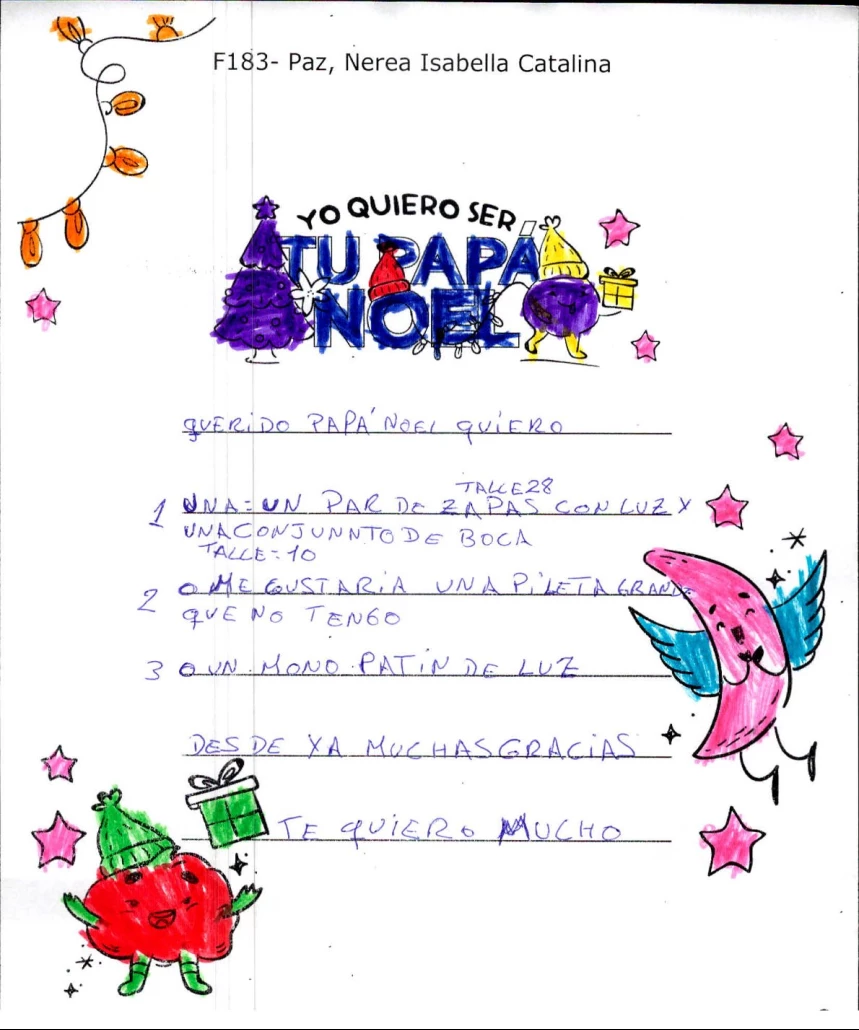 F183- Paz, Nerea Isabella Catalina
YO QUIERO SER
TU PAPÁ
NOEL
QUERIDO PAPÁ NOEL QUIERO
TALLE 28
1 UNA = UN PAR DE ZAPAS CON LUZ Y
UNA CONJUNNTO DE BOCA
TALLE = 10
2 O ME GUSTARIA UNA PILETA GRANDE
QUE NO TENGO
3 O UN MONO PATIN DE LUZ
DESDE YA MUCHAS GRACIAS
TE QUIERO MUCHO